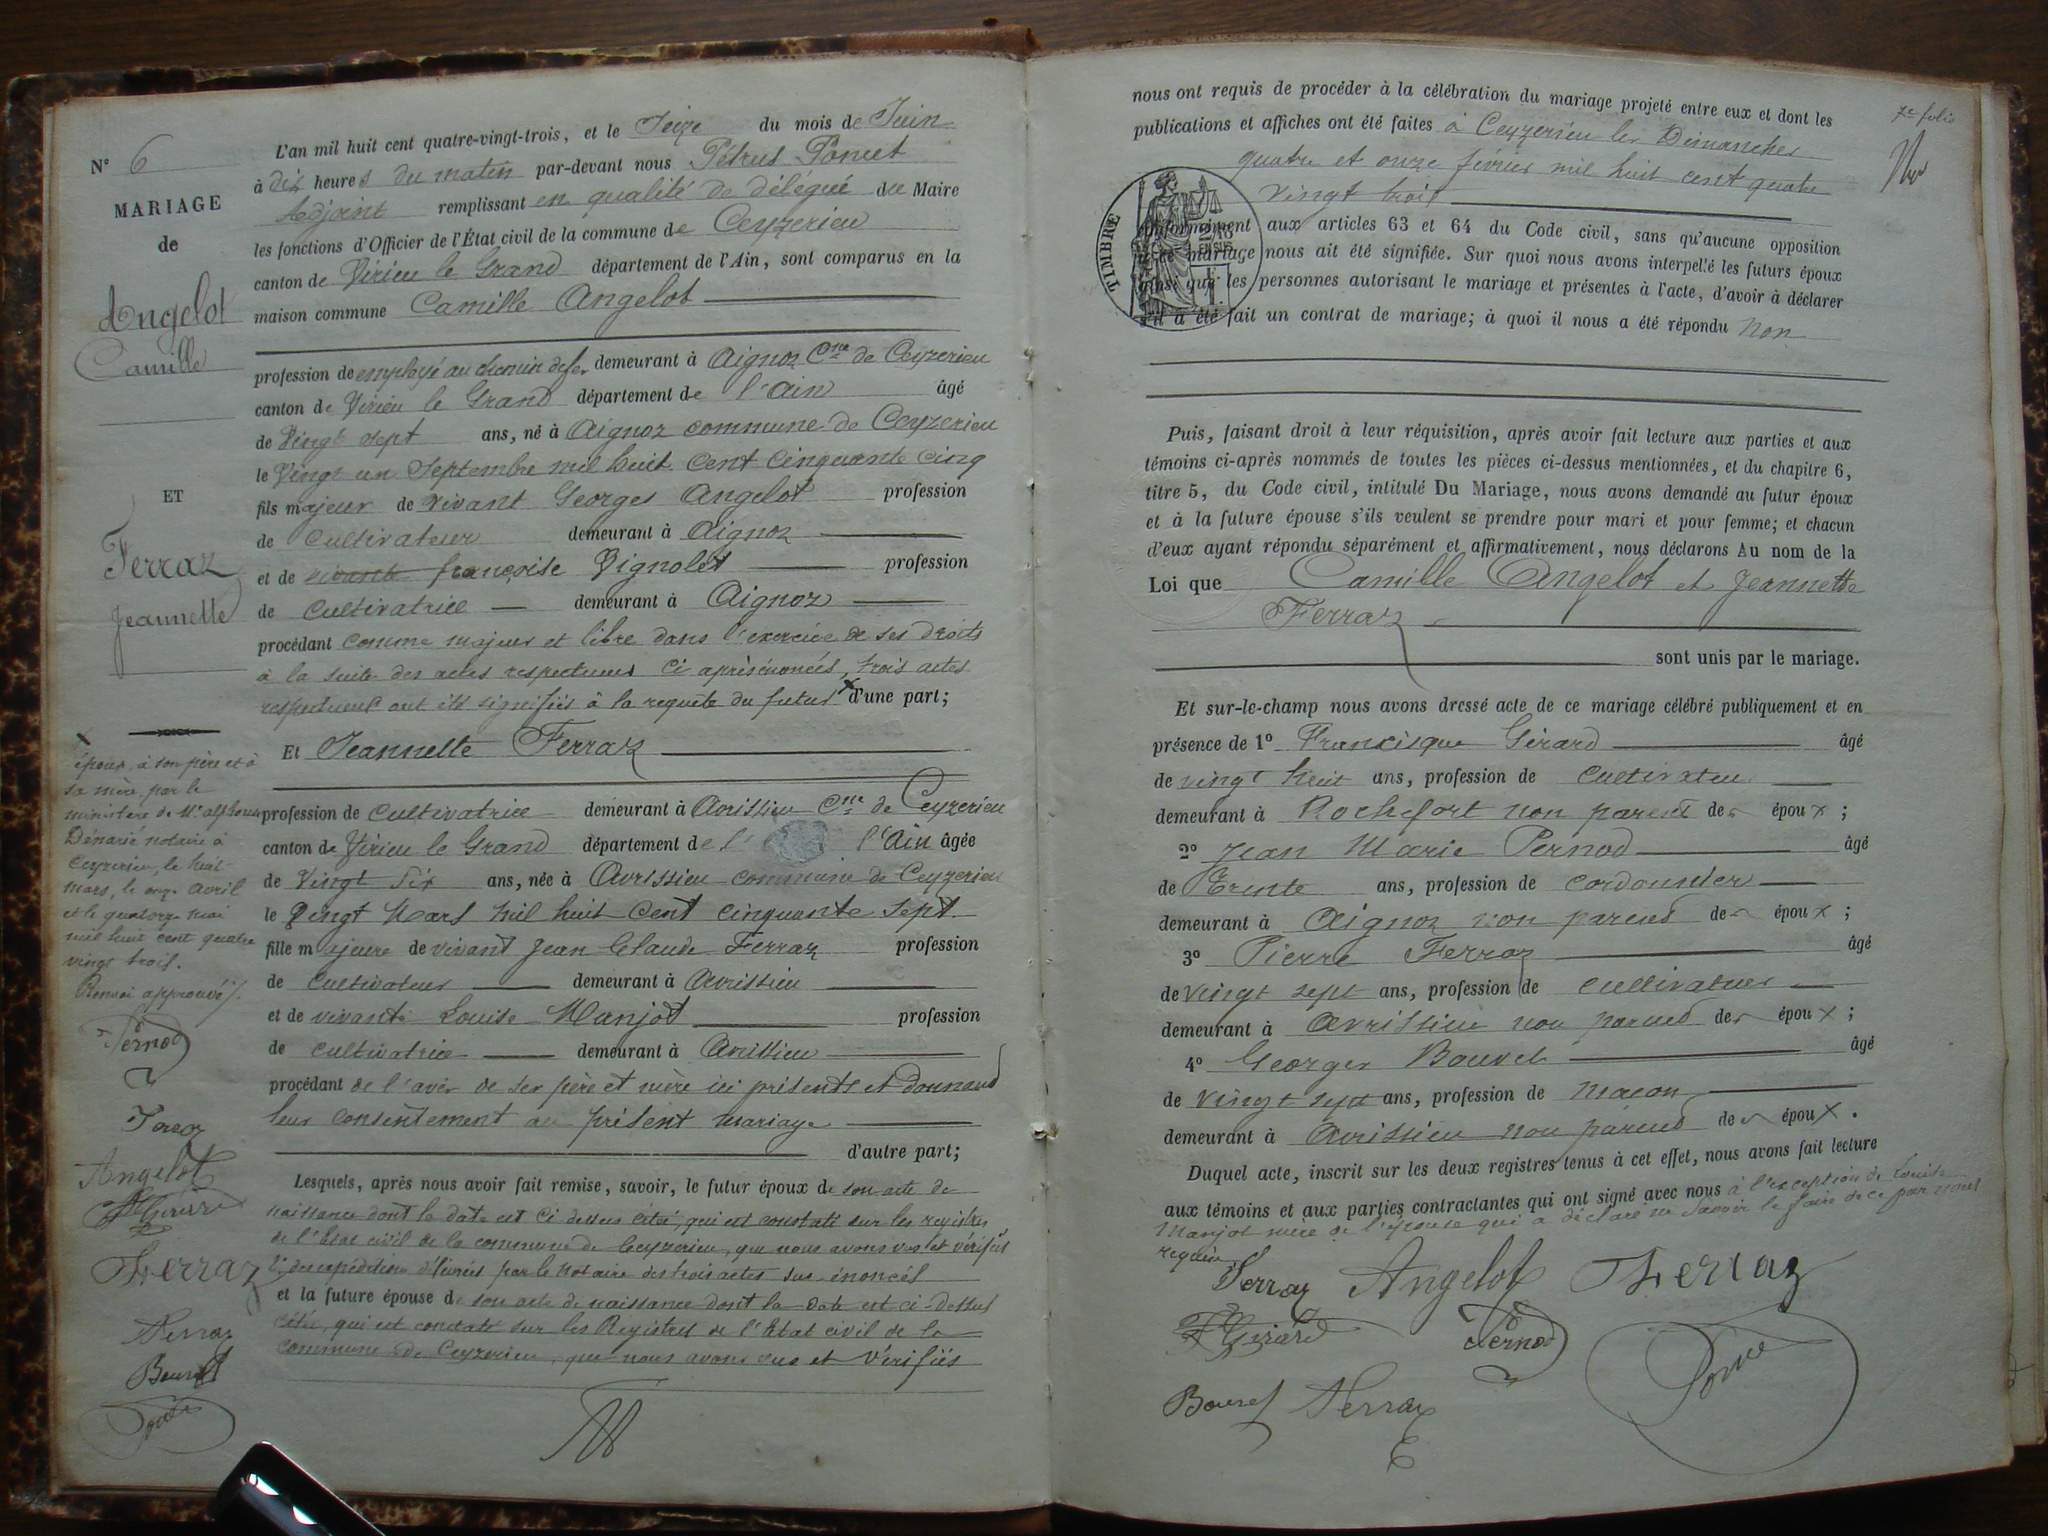 N° 6
MARIAGE
de
Angelot
Camille
ET
Ferraz
Jeannette
L'an mil huit cent quatre-vingt-trois, et le Seize du mois de Juin
à dix heures du matin par-devant nous Pétrus Poncet
Adjoint remplissant en qualité de délégué du Maire
les fonctions d'Officier de l'État civil de la commune de Ceyzerieu
canton de Virieu le Grand département de l'Ain, sont comparus en la
maison commune Camille Angelot
profession de employé au chemin de fer demeurant à Aignoz Cne de Ceyzerieu
canton de Virieu le Grand département de l'Ain âgé
de Vingt sept ans, né à Aignoz commune de Ceyzerieu
le Vingt un Septembre mil huit cent cinquante cinq
fils majeur de vivant Georges Angelot profession
de cultivateur demeurant à Aignoz
et de vivante françoise Vignolet profession
de cultivatrice demeurant à Aignoz
procédant comme majeur et libre dans l'exercice de ses droits
à la suite des actes respectueux ci après énoncés, trois actes
respectueux ont été signifiés à la requête du futur x d'une part;
Et Jeannette Ferraz
x
époux, à son père et à
sa mère par le
ministère de Mr alphonse
Dénarié notaire à
Ceyzerieu, le huit
mars, le onze avril
et le quatorze mai
mil huit cent quatre
vingt trois.
Renvoi approuvé
Pernod
Ferraz
Angelot
F Girard
Ferraz
Ferraz
Bouvet
Poncet
profession de cultivatrice demeurant à Avrissieu Cne de Ceyzerieu
canton de Virieu le Grand département de l' l'Ain âgée
de Vingt Six ans, née à Avrissieu commune de Ceyzerieu
le Vingt Mars mil huit cent cinquante sept
fille majeure de vivant Jean Claude Ferraz profession
de cultivateur demeurant à Avrissieu
et de vivante Louise Manjot profession
de cultivatrice demeurant à Avrissieu
procédant de l'avis de ses père et mère ici présents et donnant
leur consentement au présent mariage
d'autre part;
Lesquels, après nous avoir fait remise, savoir, le futur époux de son acte de
naissance dont la date est ci dessus citée, qui est constaté sur les registres
de l'état civil de la commune de Ceyzerieu, que nous avons vus et vérifiés
expéditions délivrés par le notaire des trois actes sus énoncés
et la future épouse de son acte de naissance dont la date est ci-dessus
citée, qui est constaté sur les Registres de l'état civil de la
commune de Ceyzerieu, que nous avons vus et vérifiés
7e folio
nous ont requis de procéder à la célébration du mariage projeté entre eux et dont les
publications et affiches ont été faites à Ceyzerieu les Dimanches
quatre et onze février mil huit cent quatre
vingt trois
TIMBRE
conformément aux articles 63 et 64 du Code civil, sans qu'aucune opposition
à ce mariage nous ait été signifiée. Sur quoi nous avons interpellé les futurs époux
ainsi que les personnes autorisant le mariage et présentes à l'acte, d'avoir à déclarer
s'il a été fait un contrat de mariage; à quoi il nous a été répondu Non
Puis, faisant droit à leur réquisition, après avoir fait lecture aux parties et aux
témoins ci-après nommés de toutes les pièces ci-dessus mentionnées, et du chapitre 6,
titre 5, du Code civil, intitulé Du Mariage, nous avons demandé au futur époux
et à la future épouse s'ils veulent se prendre pour mari et pour femme; et chacun
d'eux ayant répondu séparément et affirmativement, nous déclarons Au nom de la
Loi que Camille Angelot et Jeannette
Ferraz
sont unis par le mariage.
Et sur-le-champ nous avons dressé acte de ce mariage célébré publiquement et en
présence de 1° Francisque Gérard âgé
de vingt huit ans, profession de cultivateur
demeurant à Rochefort non parent des époux;
2° Jean Marie Pernod âgé
de Trente ans, profession de cordonnier
demeurant à Aignoz non parent des époux;
3° Pierre Ferraz âgé
de vingt sept ans, profession de cultivateur
demeurant à Avrissieu non parent des époux;
4° Georges Bouvet âgé
de vingt sept ans, profession de maçon
demeurant à Avrissieu non parent des époux.
Duquel acte, inscrit sur les deux registres tenus à cet effet, nous avons fait lecture
aux témoins et aux parties contractantes qui ont signé avec nous à l'exception de Louise
Manjot mère de l'épouse qui a déclaré ne savoir le faire de ce par nous
requise
Ferraz Angelot Ferraz
F Girard Pernod Poncet
Bouvet Ferraz